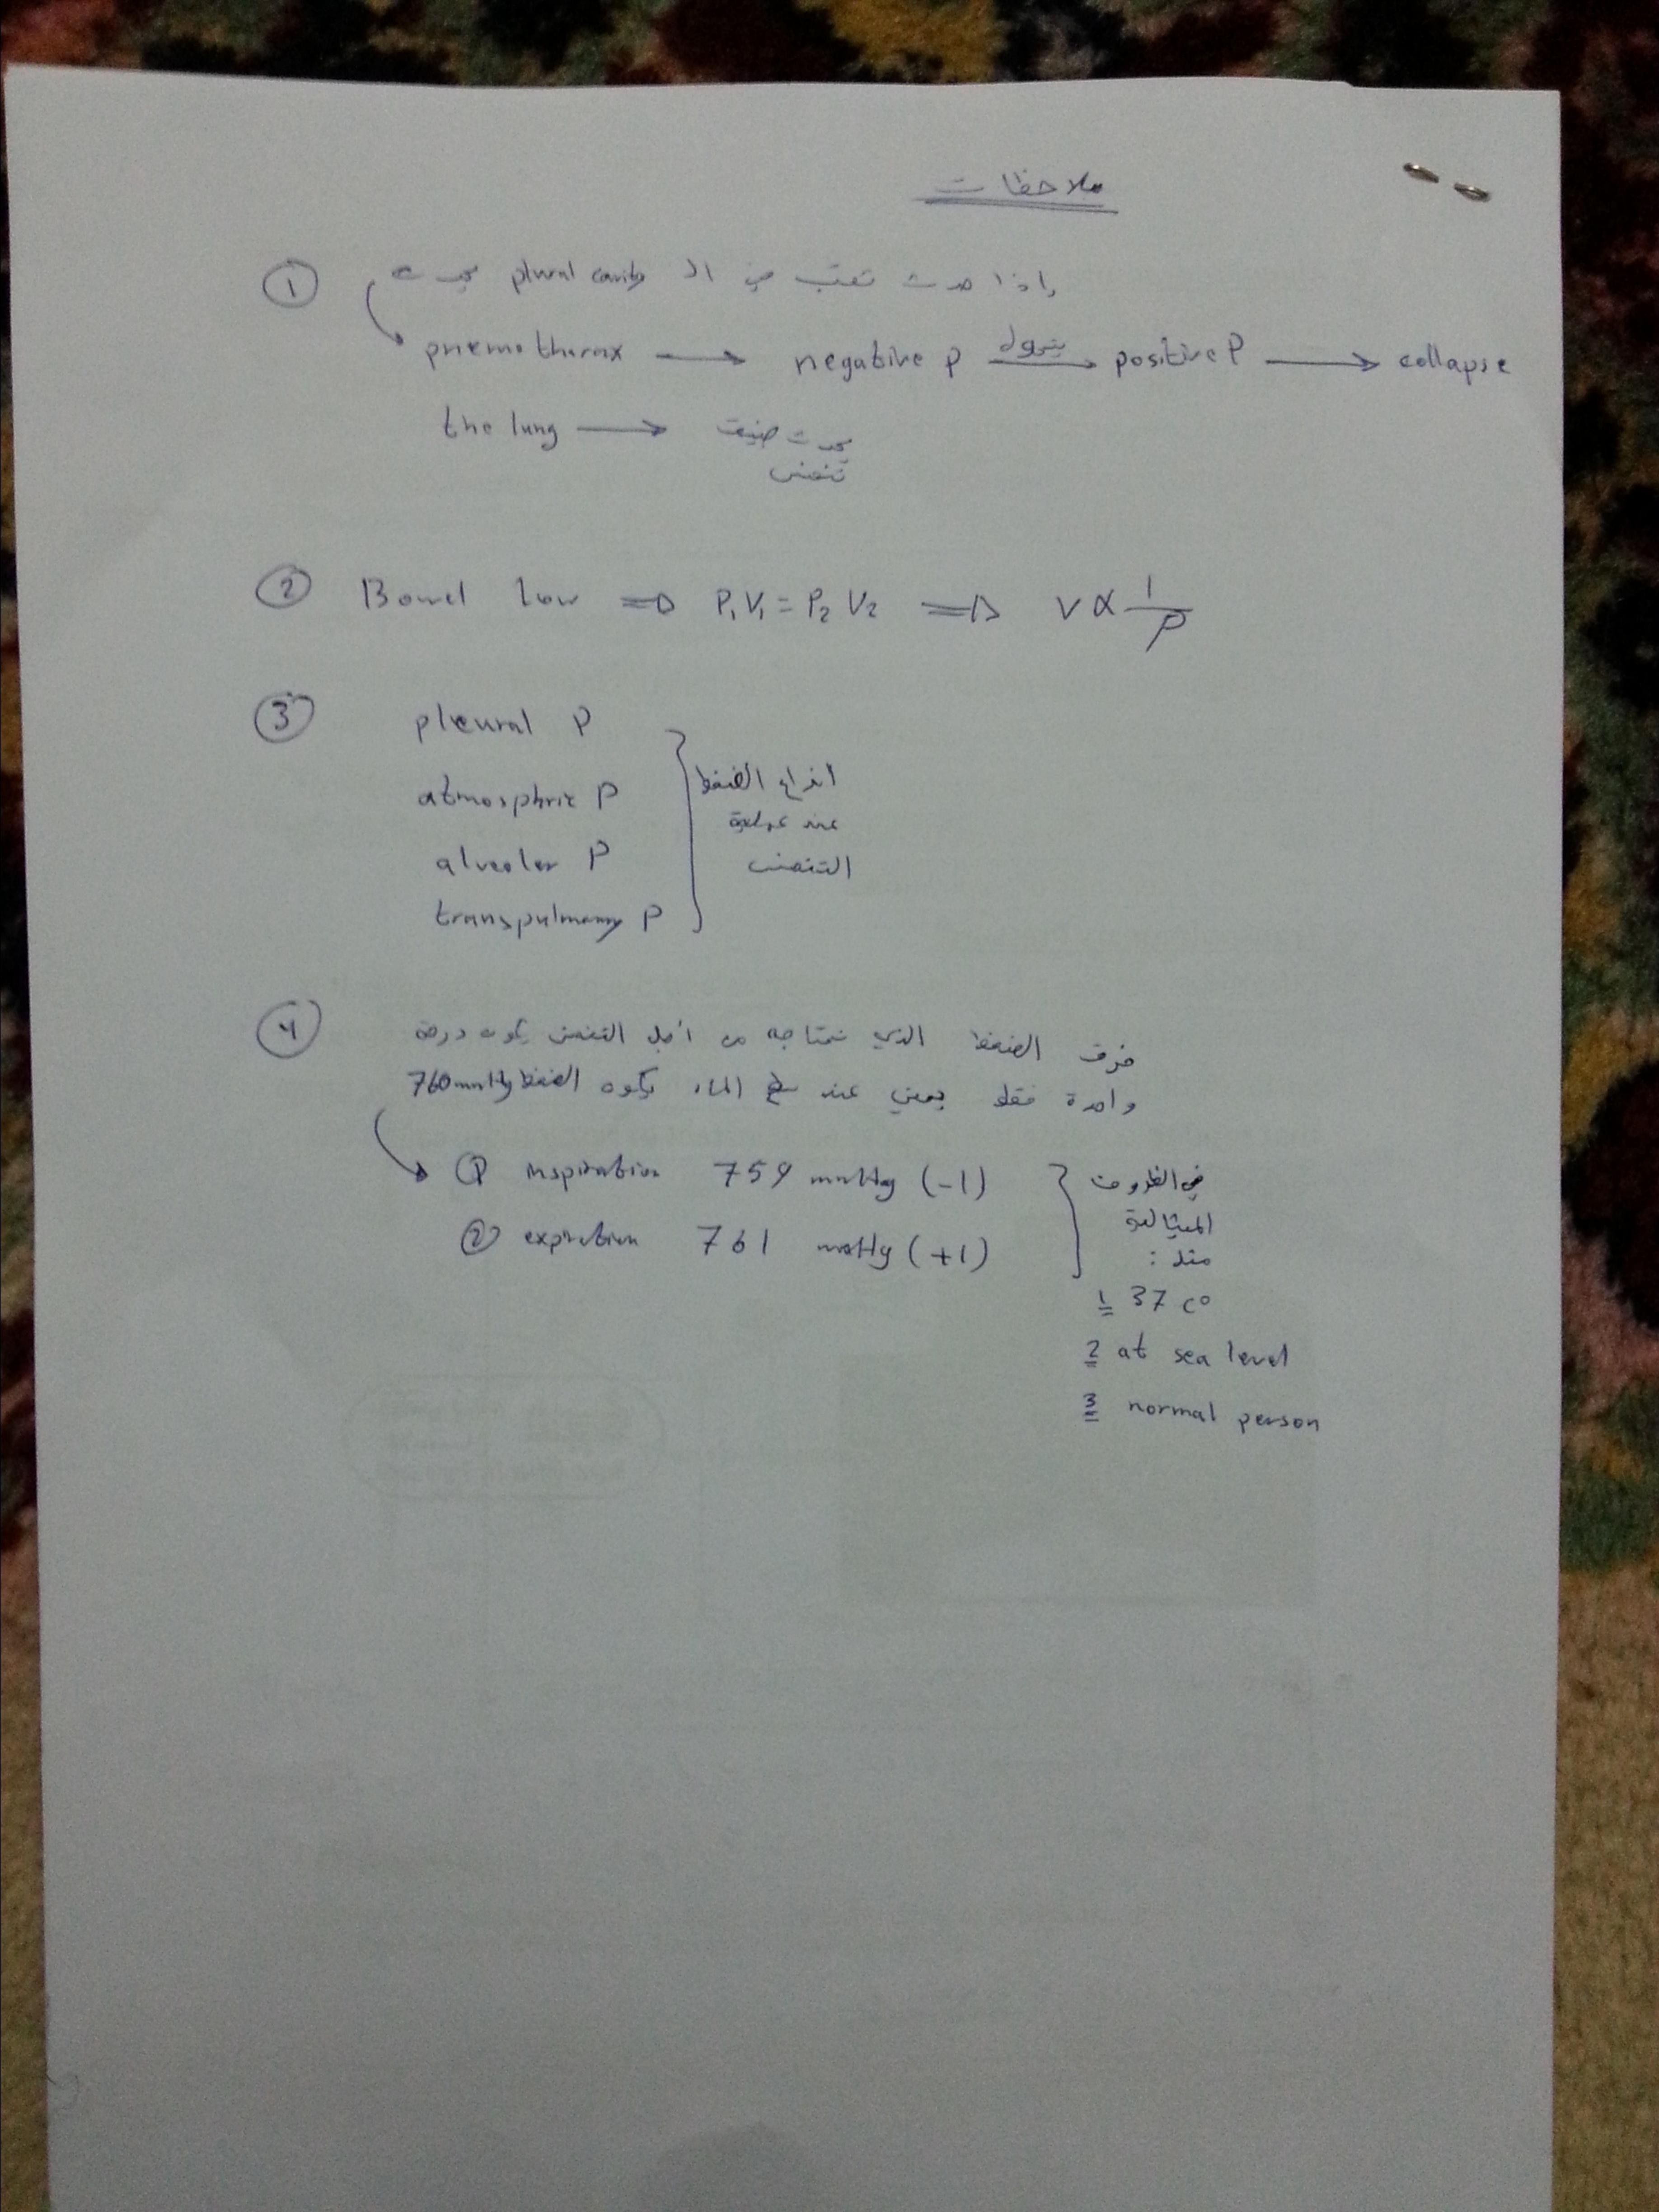 ملاحظات
① إذا حدث ثقب في ال plural cavity يحدث
pnemothorax → negative p يتحول positive P → collapse
the lung → يحدث ضيق
تنفس
② Bowel low ⇒ P₁V₁ = P₂V₂ ⇒ V ∝ 1/P
③ pleural P
atmosphric P
alveolar P
transpulmonary P
انواع الضغط
عند عملية
التنفس
④ فرق الضغط الذي نحتاجه من أجل التنفس يكون درجة
واحدة فقط يعني عند سطح الماء يكون الضغط 760mmHg
① inspiration 759 mmHg (-1)
② expiration 761 mmHg (+1)
في الظروف
المثالية
مثل :
1 37 c°
2 at sea level
3 normal person